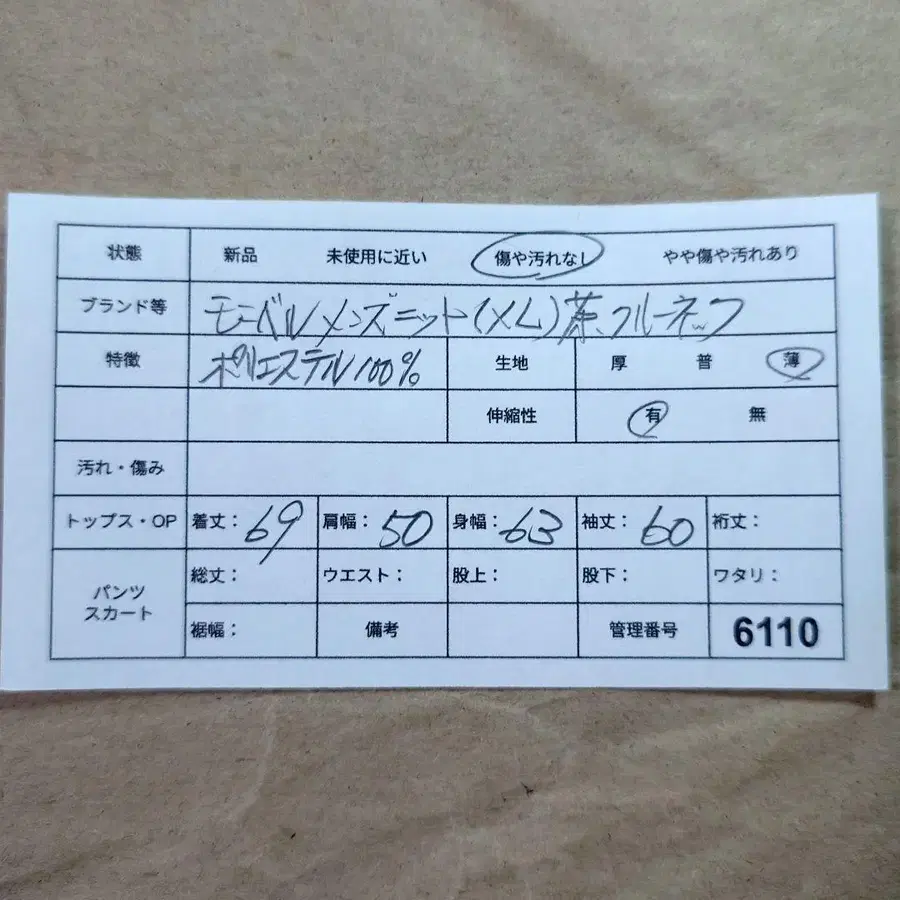 状態 新品 未使用に近い 傷や汚れなし やや傷や汚れあり
ブランド等 モーベルメンズニット(XL)茶、クルーネック
特徴 ポリエステル100% 生地 厚 普 薄
伸縮性 有 無
汚れ・傷み
トップス・OP 着丈: 69 肩幅: 50 身幅: 63 袖丈: 60 裄丈:
パンツ スカート
総丈: ウエスト: 股上: 股下: ワタリ:
裾幅: 備考 管理番号 6110